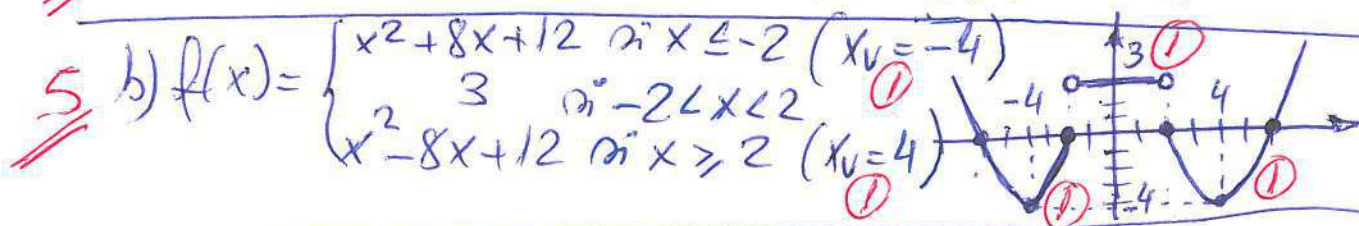 5 b) f(x) = { x² + 8x + 12 si x ≤ -2 (x_v = -4) ①
3 si -2 < x < 2
x² - 8x + 12 si x ≥ 2 (x_v = 4) ①
3 ①
-4 4
-4 ① ①